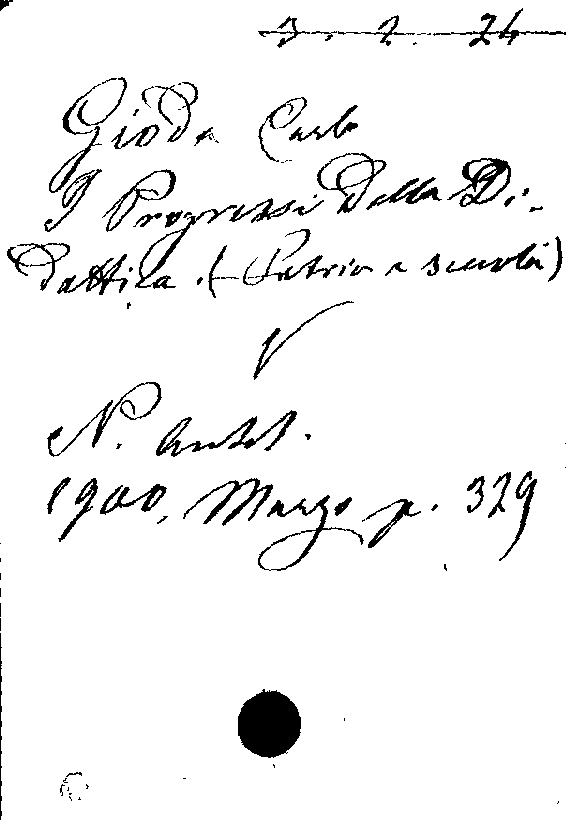 3. 2. 24
Gioda Carlo
I Progressi della Di-
dattica. (Patria e scuola)
V
N. Antol.
1900, Marzo p. 329